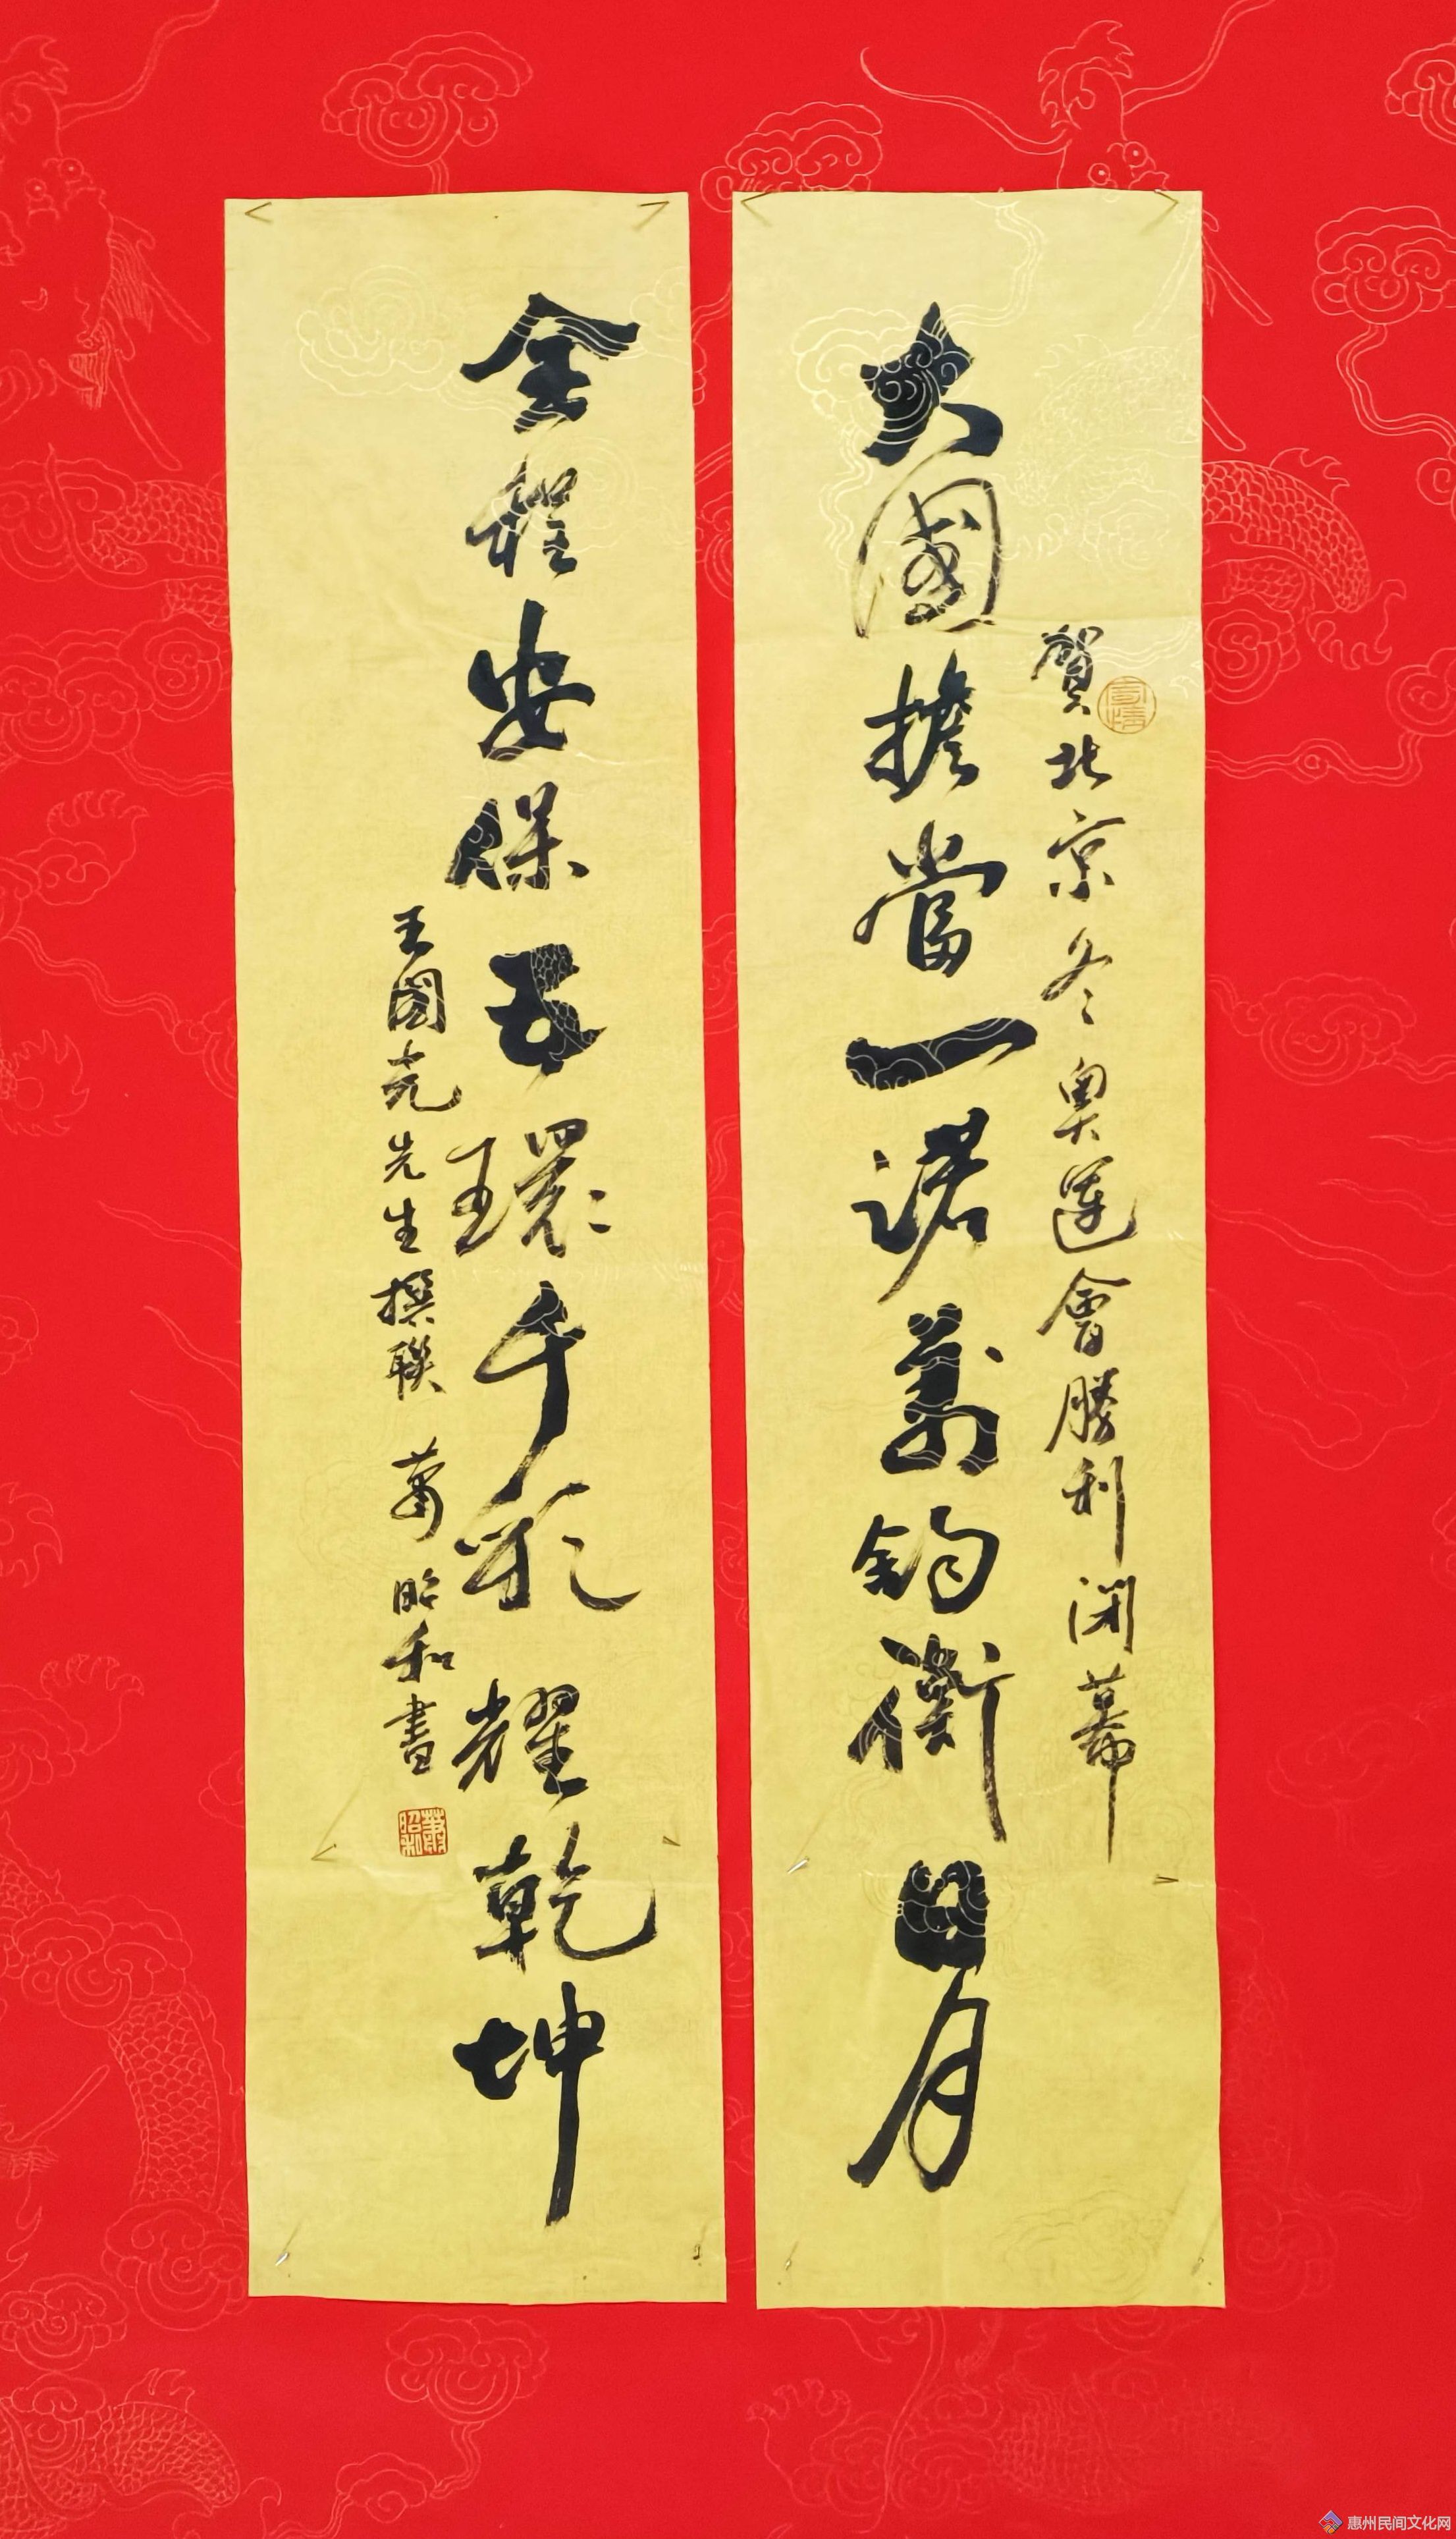 賀北京冬奧運會勝利閉幕
大國擔當一諾萬鈞衡日月
全程安保五環千彩耀乾坤
王國亮先生撰聯 蕭昭和書
蕭昭和
惠州民间文化网